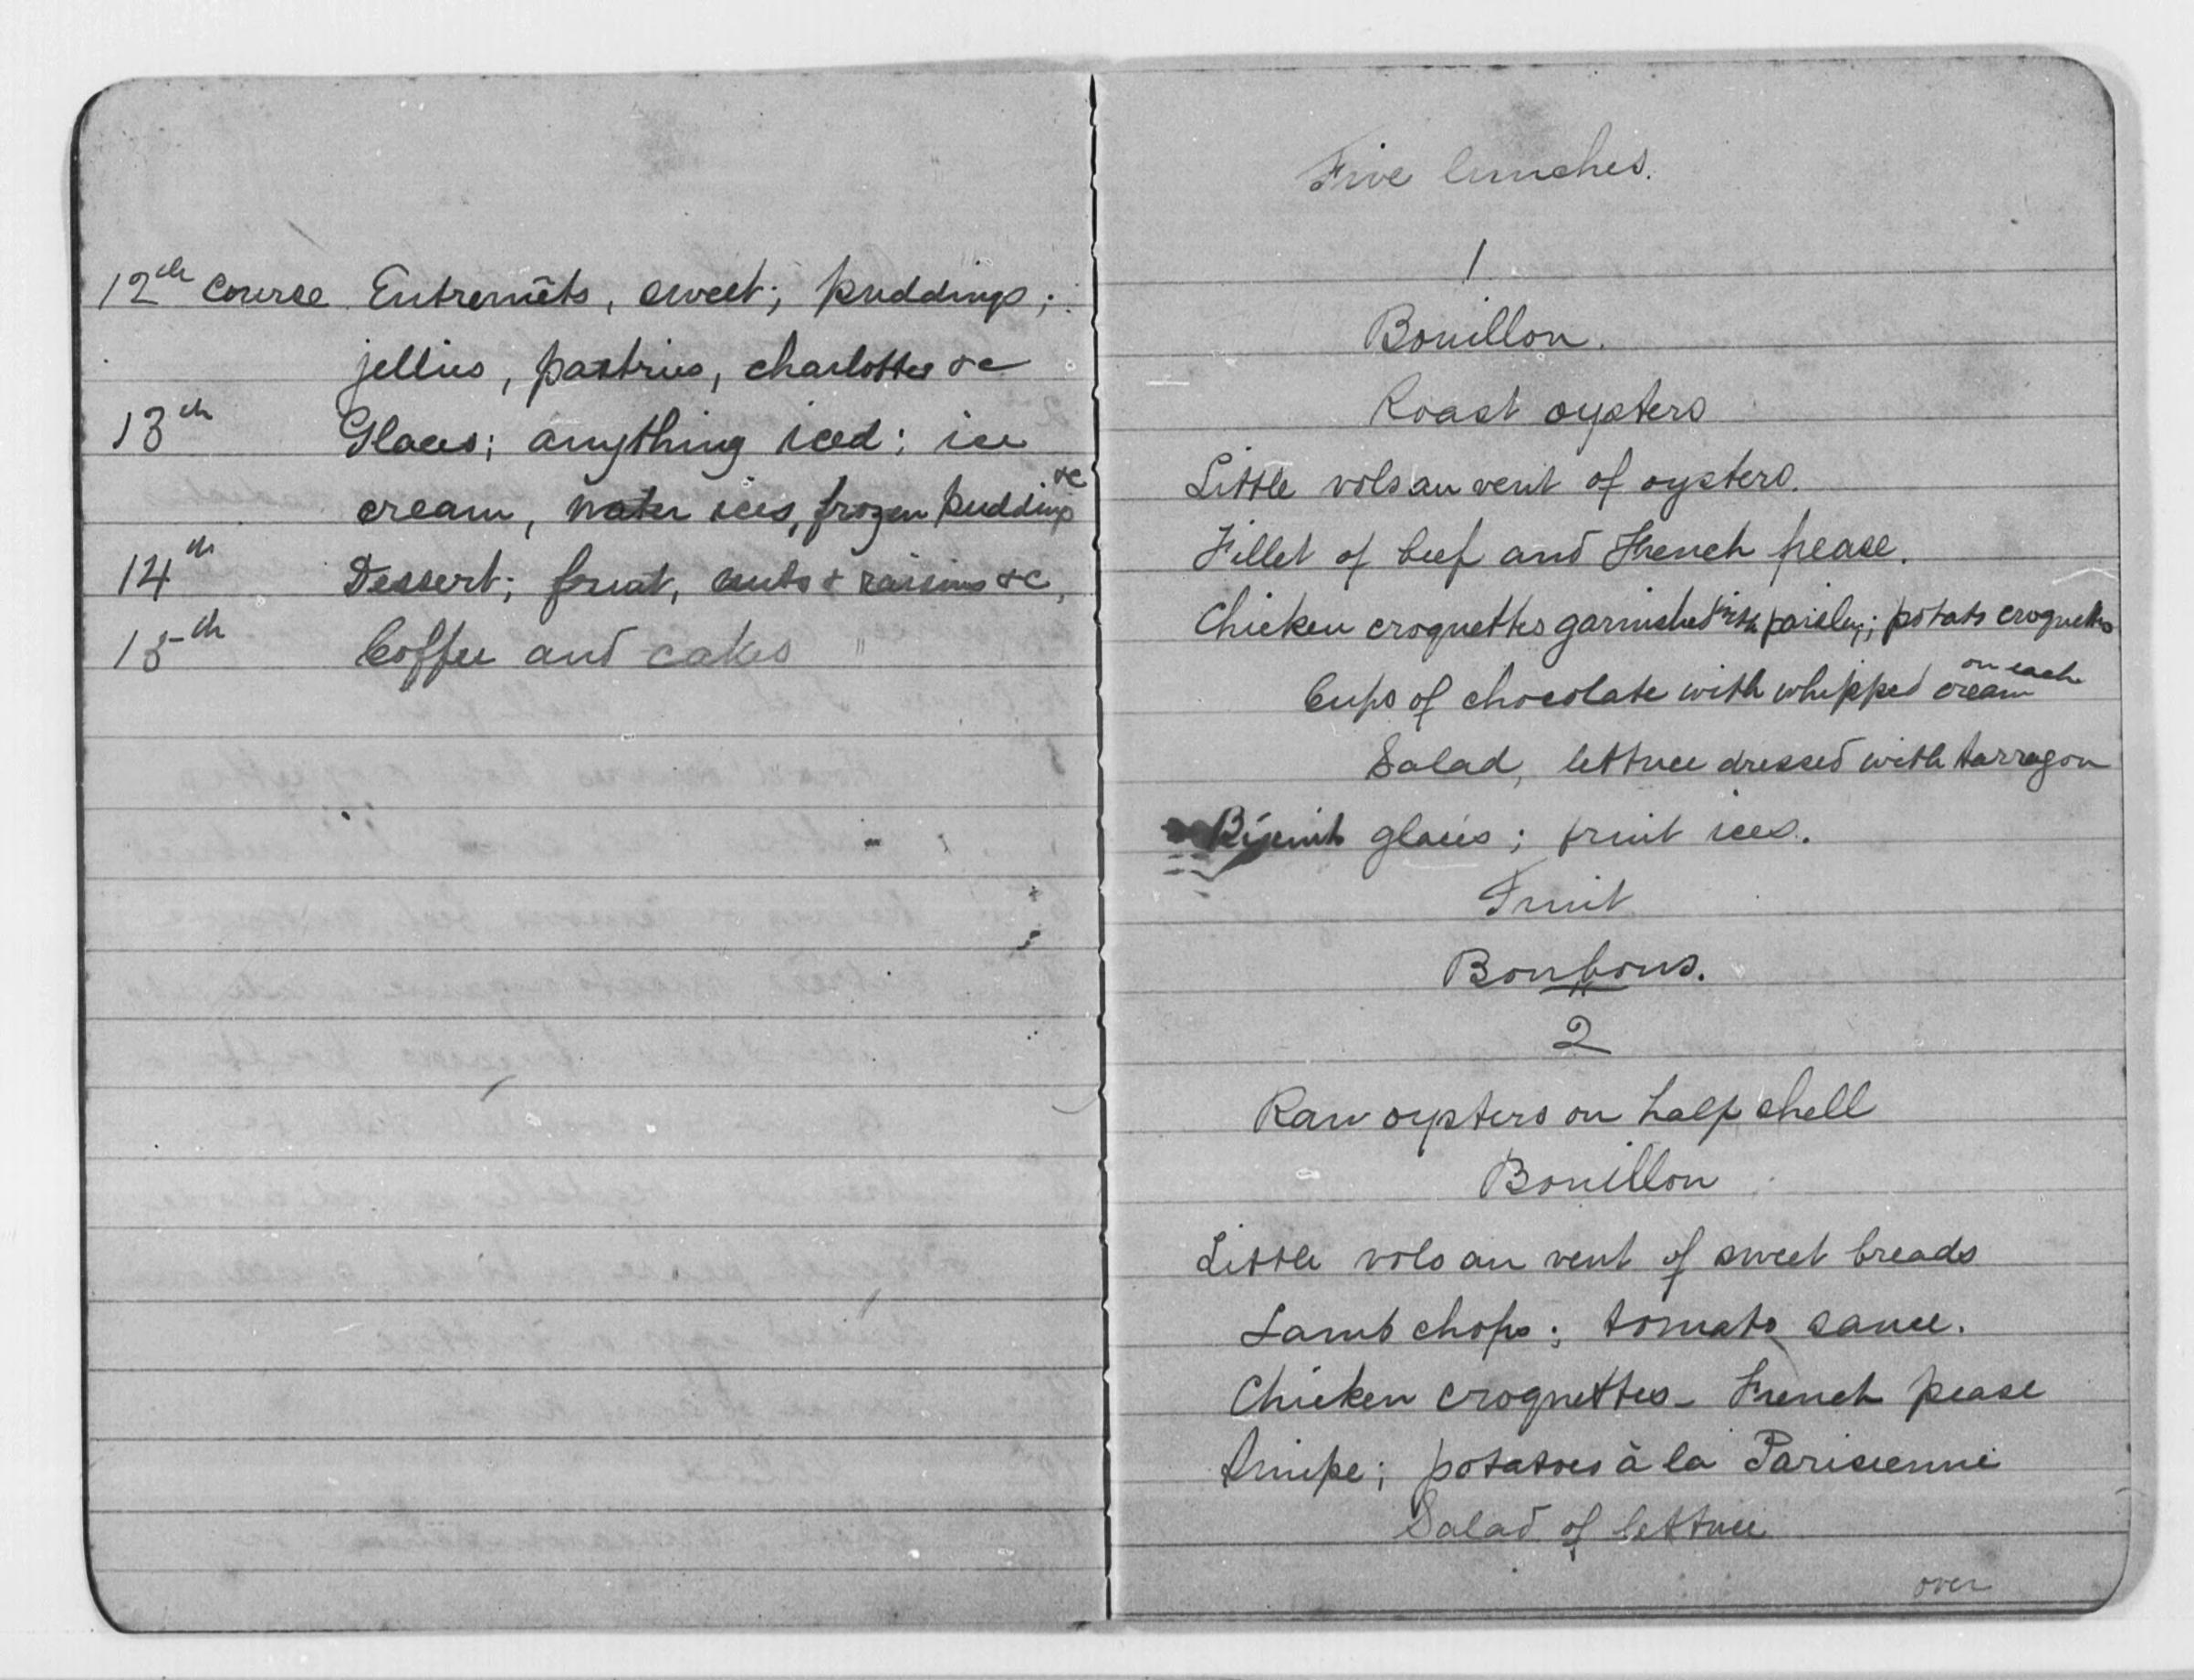 12th course Entremêts, sweet; puddings;
jellies, pastries, charlottes &c
13th Glaces; anything iced: ice
cream, water ices, frozen puddings &c
14th Dessert; fruit, nuts & raisins &c,
15th Coffee and cakes
Five lunches.
1
Bouillon.
Roast oysters
Little vols au vent of oysters.
Fillet of beef and French pease.
Chicken croquettes garnished with parsley; potato croquettes
Cups of chocolate with whipped cream on each
Salad, lettuce dressed with tarragon
Biscuit glacés; fruit ices.
Fruit
Bonbons.
2
Raw oysters on half shell
Bouillon
Little vols au vent of sweet breads
Lamb chops; tomato sauce.
Chicken croquettes - French pease
Snipe; potatoes à la Parisienne
Salad of lettuce
over